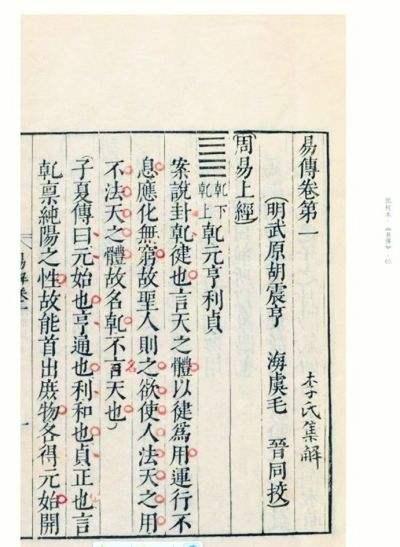 易傳卷第一
李氏集解
(明武原胡震亨　海虞毛　晉同挍)
(周易上經)
☰☰ 乾下 乾上 乾元亨利貞
案說卦乾健也言天之體以健爲用運行不
息應化無窮故聖人則之欲使人法天之用
不法天之體故名乾不言天也
名
(子夏傳曰元始也亨通也利和也貞正也言
乾稟純陽之性故能首出庶物各得元始開
易解卷一
一